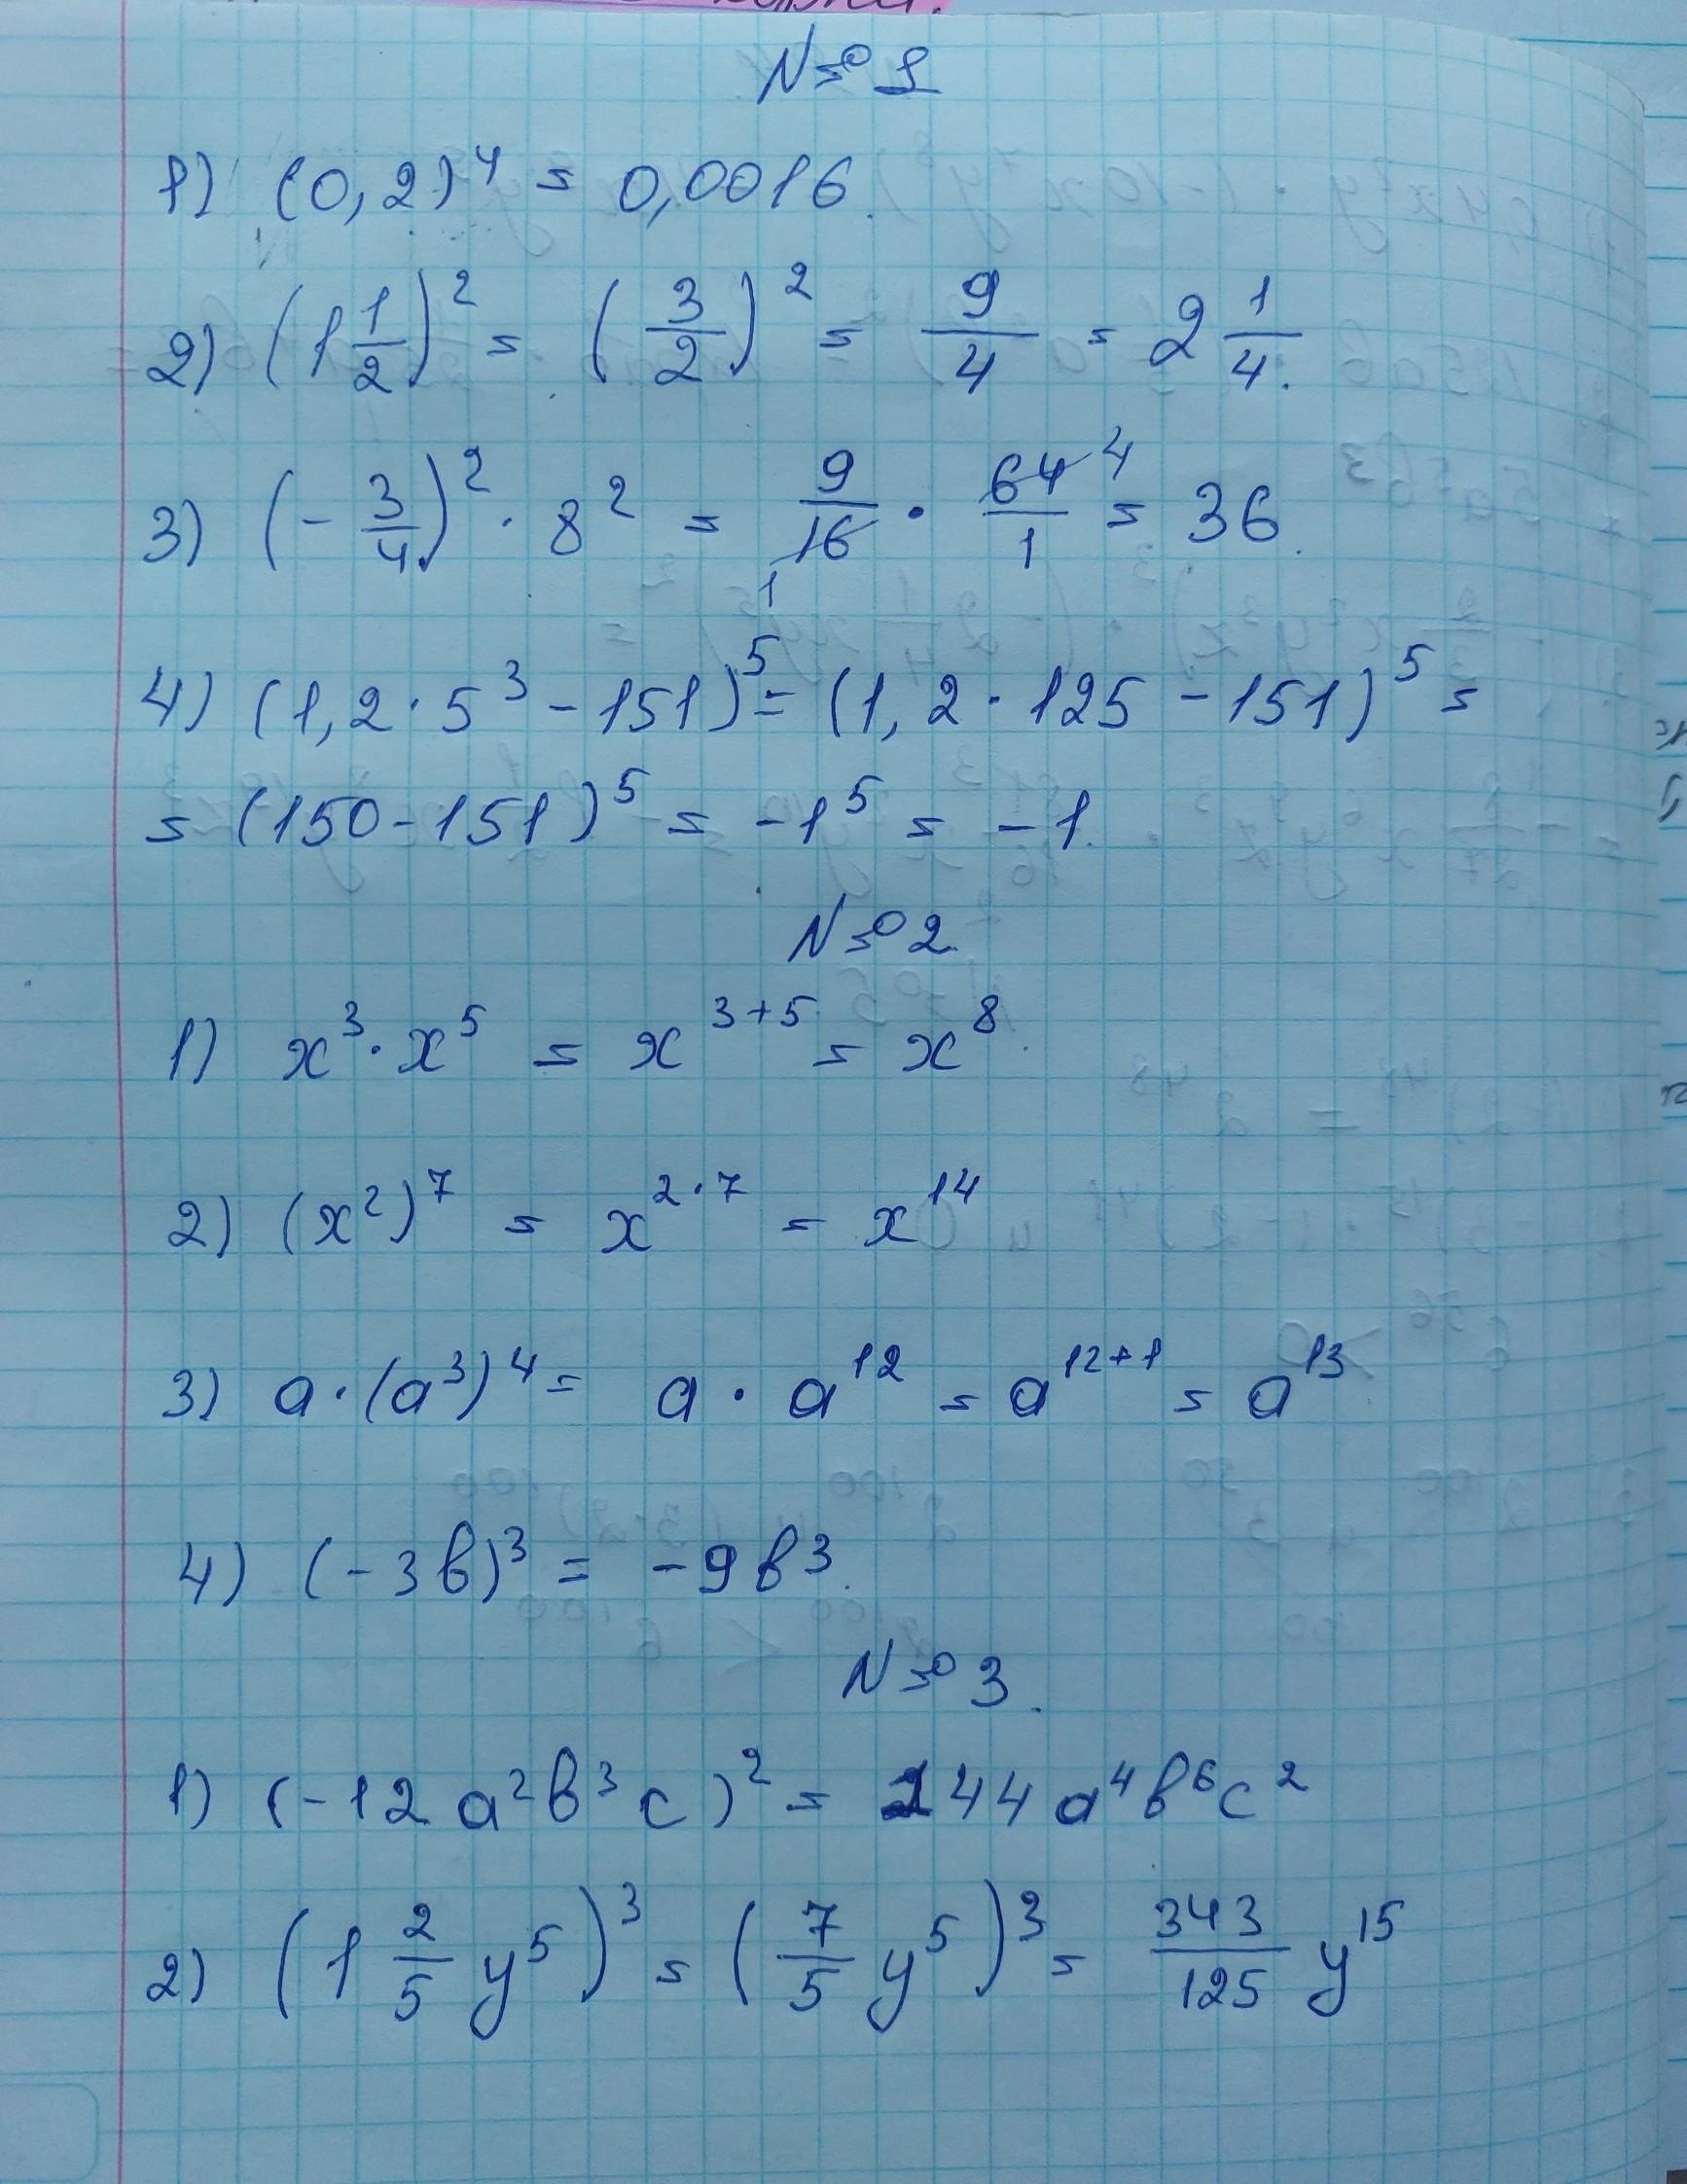 № 1
1) (0,2)⁴ = 0,0016.
2) (1 1/2)² = (3/2)² = 9/4 = 2 1/4.
3) (- 3/4)² · 8² = 9/16 · 64/1 = 36.
1 4
4) (1,2 · 5³ - 151)⁵ = (1,2 · 125 - 151)⁵ =
= (150 - 151)⁵ = -1⁵ = -1.
№ 2.
1) x³ · x⁵ = x³⁺⁵ = x⁸.
2) (x²)⁷ = x²·⁷ = x¹⁴
3) a · (a³)⁴ = a · a¹² = a¹²⁺¹ = a¹³.
4) (-3в)³ = -9в³.
№ 3.
1) (-12 a²в³c)² = 144 a⁴в⁶c²
2) (1 2/5 y⁵)³ = (7/5 y⁵)³ = 343/125 y¹⁵